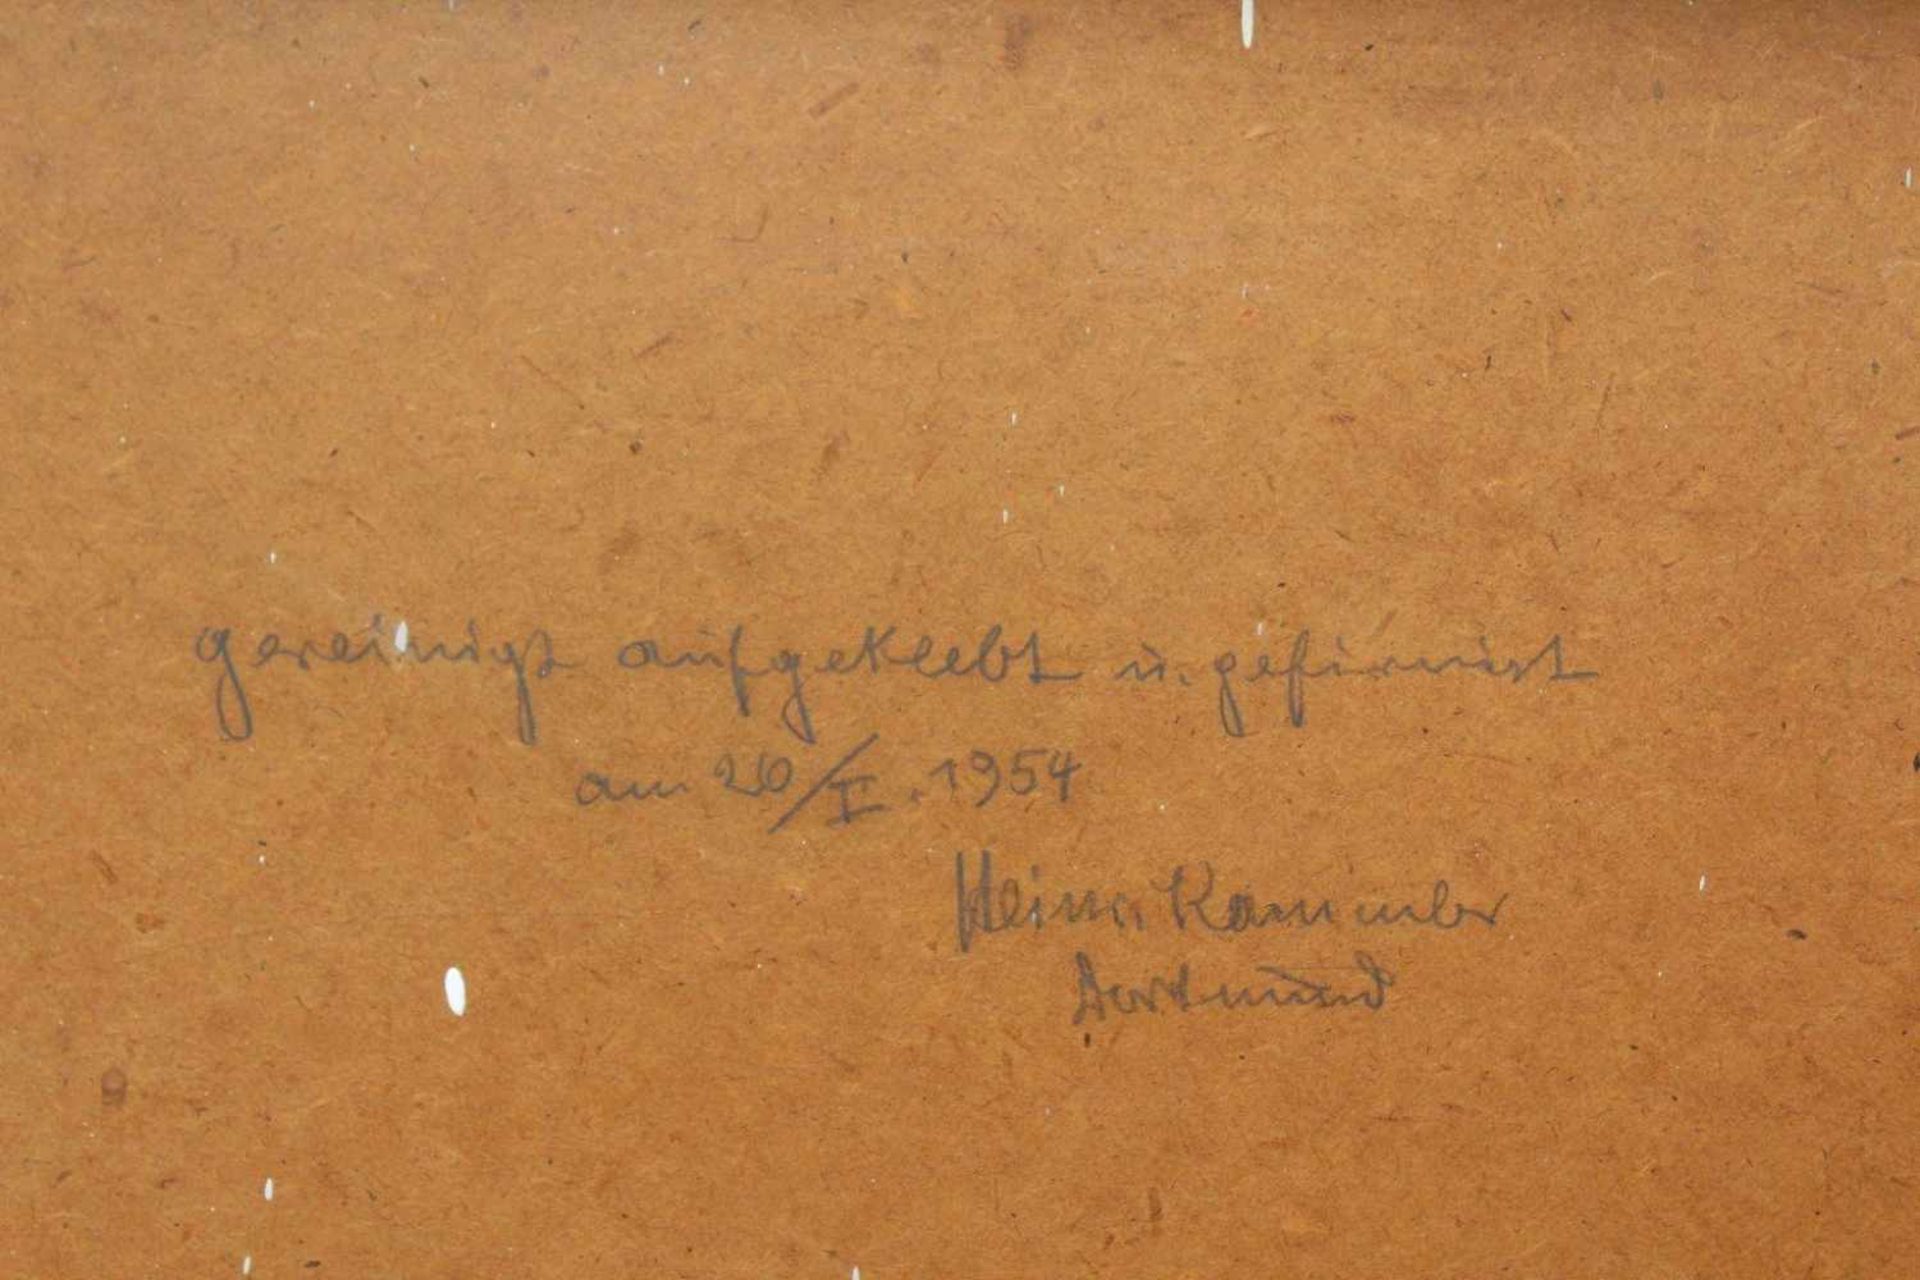 gereinigt aufgeklebt u. gefirnist
am 26/I. 1954
Heinr. Kammler
Dortmund